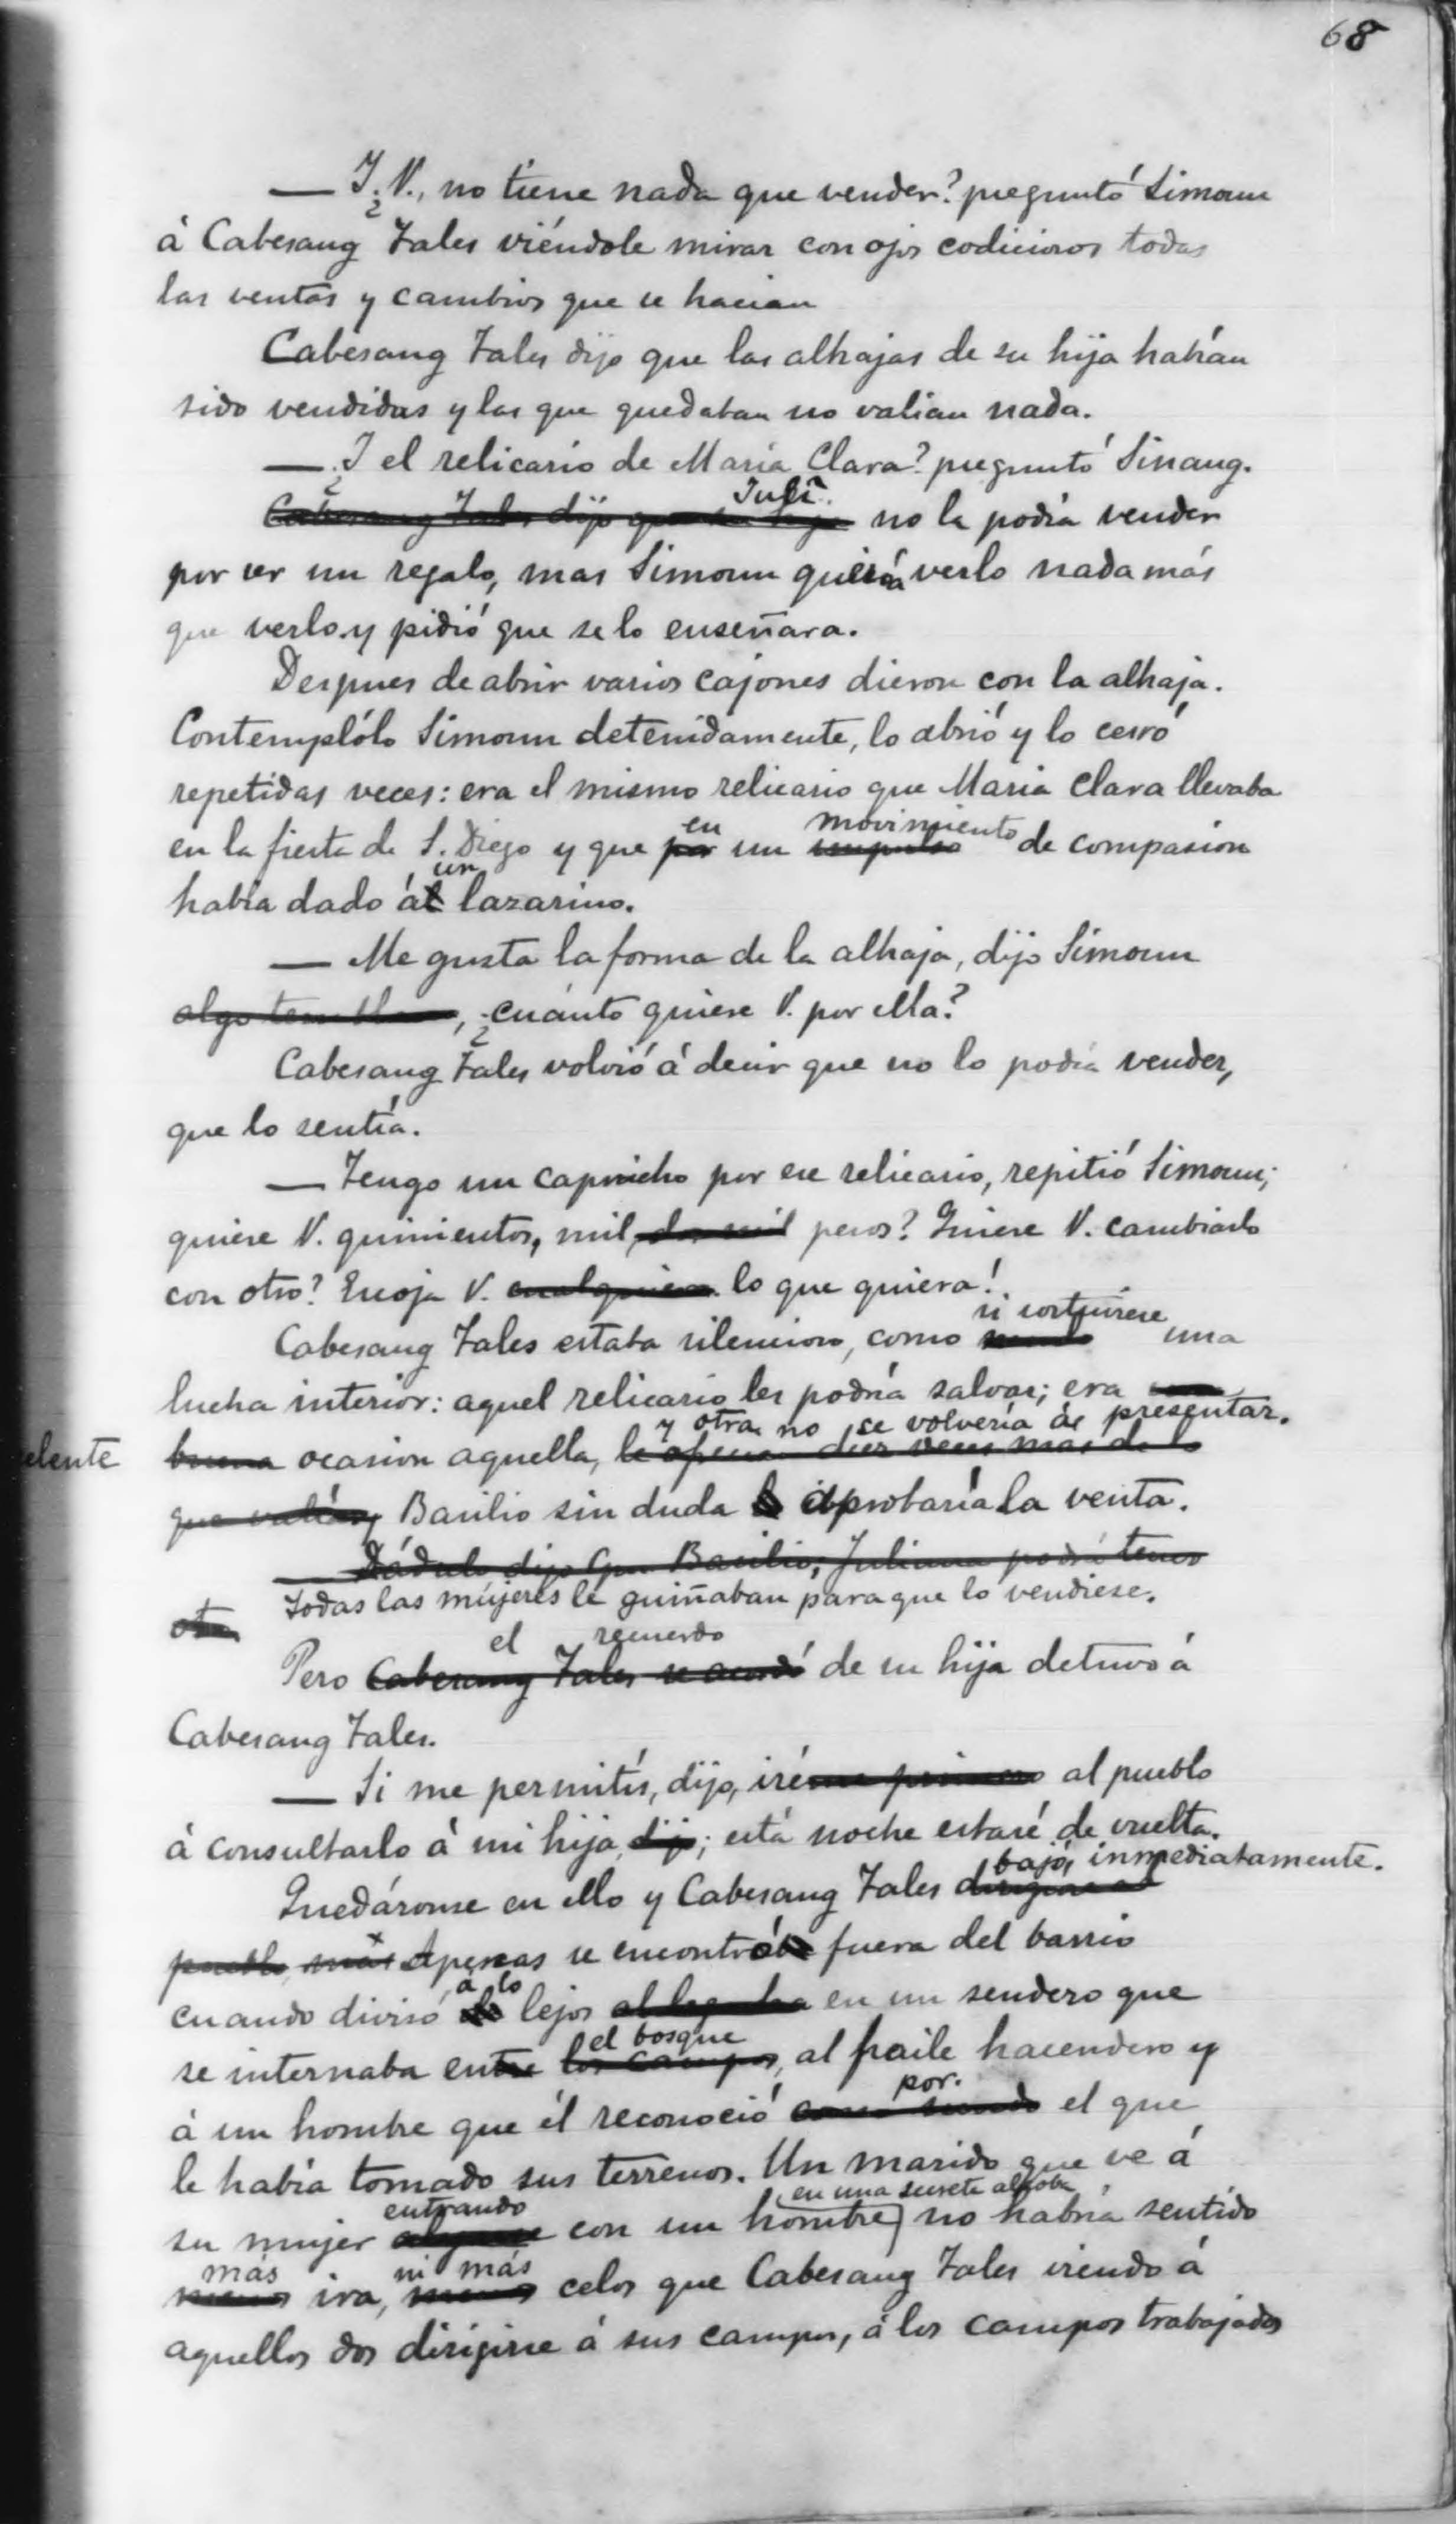 68
— Y ¿V., no tiene nada que vender? preguntó Simoun
á Cabesang Tales viéndole mirar con ojos codiciosos todas
las ventas y cambios que se hacian
Cabesang Tales dijo que las alhajas de su hija habían
sido vendidas y las que quedaban no valian nada.
— ¿Y el relicario de María Clara? preguntó Sinang.
Julî
Cabesang Tales dijo que su hija no la podía vender
por ser un regalo, mas Simoun quería verlo nada más
que verlo y pidió que se lo enseñara.
Despues de abrir varios cajones dieron con la alhaja.
Contemplólo Simoun detenidamente, lo abrió y lo cerró
repetidas veces: era el mismo relicario que Maria Clara llevaba
en movimiento
en la fiesta de S. Diego y que por un impulso de compasion
un
había dado ál lazarino.
— Me gusta la forma de la alhaja, dijo Simoun
algo , ¿cuánto quiere V. por ella?
Cabesang Tales volvió á decir que no lo podía vender,
que lo sentía.
— Tengo un capricho por ese relicario, repitió Simoun;
quiere V. quinientos, mil, dos mil pesos? Quiere V. cambiarlo
con otro? Escoja V. cualquiera lo que quiera!
si sostuviese
Cabesang Tales estaba silencioso, como una
lucha interior: aquel relicario les podría salvar; era
y otra no se volvería á presentar.
elente buena ocasion aquella, le ofrecen diez veces mas de lo
que valía, Basilio sin duda aprobaría la venta.
— Dádselo dijo Cpn Basilio; Juliana podrá tener
Todas las mujeres le guiñaban para que lo vendiese.
otra
el recuerdo
Pero Cabesang Tales se acordó de su hija detuvo á
Cabesang Tales.
— Si me permitís, dijo, iréme primero al pueblo
á consultarlo á mi hija, dijo; esta noche estaré de vuelta.
bajó inmediatamente.
Quedáronse en ello y Cabesang Tales dirigióse al
pueblo, mas Apenas se encontraba fuera del barrio
á lo
cuando divisó lejos en un sendero que
el bosque
se internaba entre los campos, al fraile hacendero y
por
á un hombre que él reconoció como siendo el que
le había tomado sus terrenos. Un marido que ve á
en una secreta alcoba
entrando
su mujer con un hombre no habría sentido
más ni más
menos ira, menos celos que Cabesang Tales viendo á
aquellos dos dirigirse á sus campos, á los campos trabajados